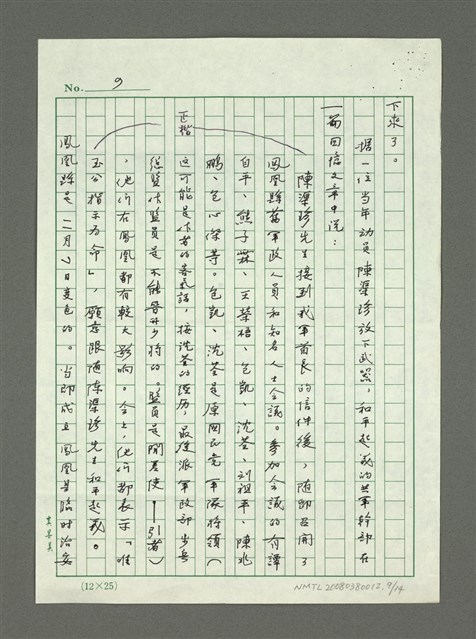 No. 9
下來了。
據一位當年動員陳渠珍放下武器,和平起義的共軍幹部在
一篇回憶文章中說:
陳渠珍先生接到我軍首長的信件後,隨即召開了
鳳凰縣舊軍政人員和知名人士會議。參加會議的有譚
自平、熊子霖、王榮梧、包凱、沈荃、刘祖平、陳兆
鵬、包心傑等。包凱、沈荃是原國民党軍隊將領(
正楷
這可能是作者的客氣話,按沈荃的經历,最後派軍政部少兵
總監作監員是不能晉升少將的。監員是閒差使——引者)
,他们在鳳凰都有較大影响。会上,他们都表示「唯
玉公指示为命」,願意跟隨陳渠珍先生和平起義。
鳳凰縣是二月八日变色的。当即成立鳳凰县臨时治安
(12×25)
NMTL20080380012.9/14